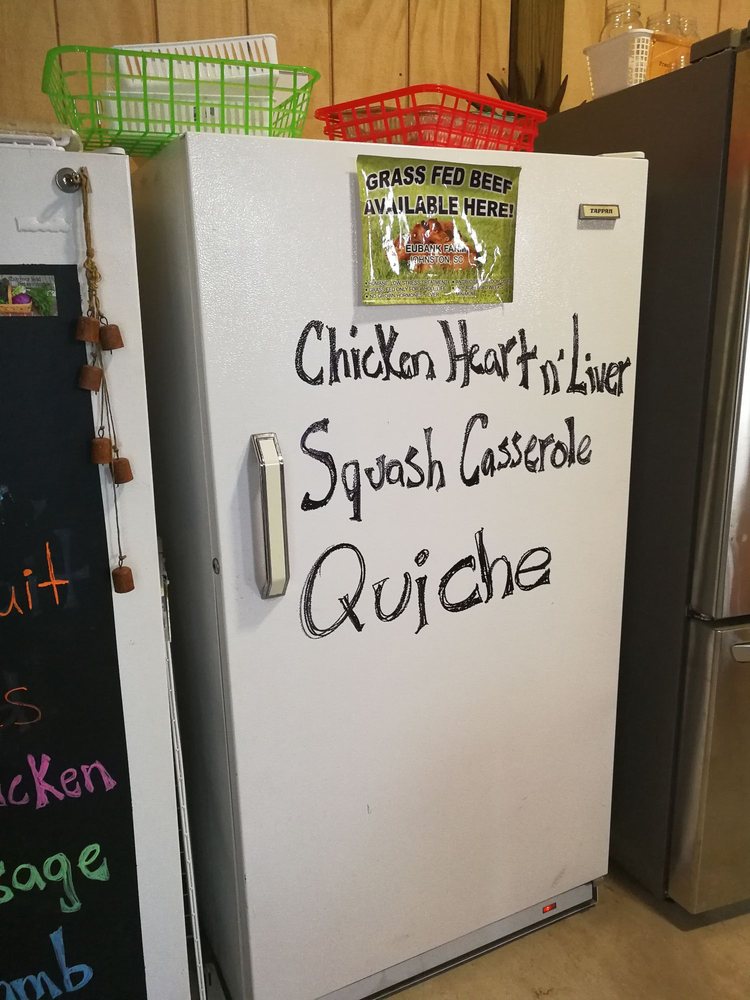 GRASS FED BEEF
AVAILABLE HERE!
EUBANK FARM
JOHNSTON, SC
TAPPAN
Chicken Heart n' Liver
Squash Casserole
Quiche
uit
es
icken
sage
amb